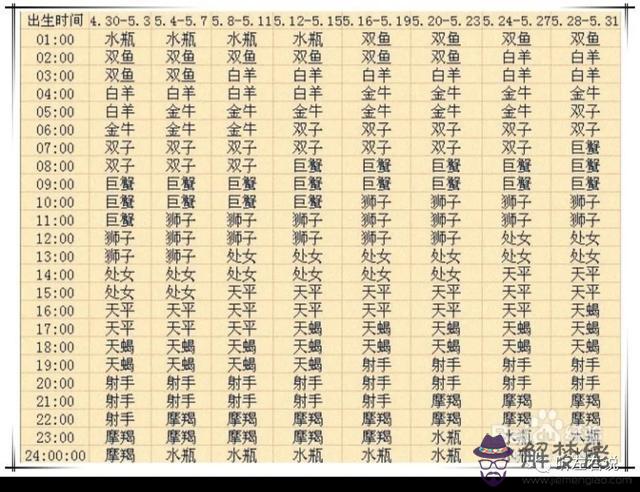 出生时间 4.30-5.3 5.4-5.7 5.8-5.11 5.12-5.15 5.16-5.19 5.20-5.23 5.24-5.27 5.28-5.31
01:00 水瓶 水瓶 水瓶 水瓶 双鱼 双鱼 双鱼 双鱼
02:00 双鱼 双鱼 双鱼 双鱼 双鱼 双鱼 白羊 白羊
03:00 双鱼 双鱼 白羊 白羊 白羊 白羊 白羊 白羊
04:00 白羊 白羊 白羊 白羊 金牛 金牛 金牛 金牛
05:00 白羊 金牛 金牛 金牛 金牛 金牛 金牛 双子
06:00 金牛 金牛 金牛 双子 双子 双子 双子 双子
07:00 双子 双子 双子 双子 双子 双子 双子 巨蟹
08:00 双子 双子 双子 巨蟹 巨蟹 巨蟹 巨蟹 巨蟹
09:00 巨蟹 巨蟹 巨蟹 巨蟹 巨蟹 巨蟹 巨蟹 巨蟹
10:00 巨蟹 巨蟹 巨蟹 巨蟹 狮子 狮子 狮子 狮子
11:00 巨蟹 狮子 狮子 狮子 狮子 狮子 狮子 狮子
12:00 狮子 狮子 狮子 狮子 狮子 狮子 处女 处女
13:00 狮子 狮子 处女 处女 处女 处女 处女 处女
14:00 处女 处女 处女 处女 处女 处女 天平 天平
15:00 处女 处女 天平 天平 天平 天平 天平 天平
16:00 天平 天平 天平 天平 天平 天平 天平 天蝎
17:00 天平 天平 天平 天蝎 天蝎 天蝎 天蝎 天蝎
18:00 天蝎 天蝎 天蝎 天蝎 天蝎 天蝎 天蝎 天蝎
19:00 天蝎 天蝎 天蝎 天蝎 射手 射手 射手 射手
20:00 射手 射手 射手 射手 射手 射手 射手 射手
21:00 射手 射手 射手 射手 射手 摩羯 摩羯 摩羯
22:00 射手 摩羯 摩羯 摩羯 摩羯 摩羯 摩羯
23:00 摩羯 摩羯 摩羯 摩羯 水瓶 水瓶 水瓶 水瓶
24:00:00 摩羯 水瓶 水瓶 水瓶 水瓶 水瓶
解梦佬
www.jiemengiao.com